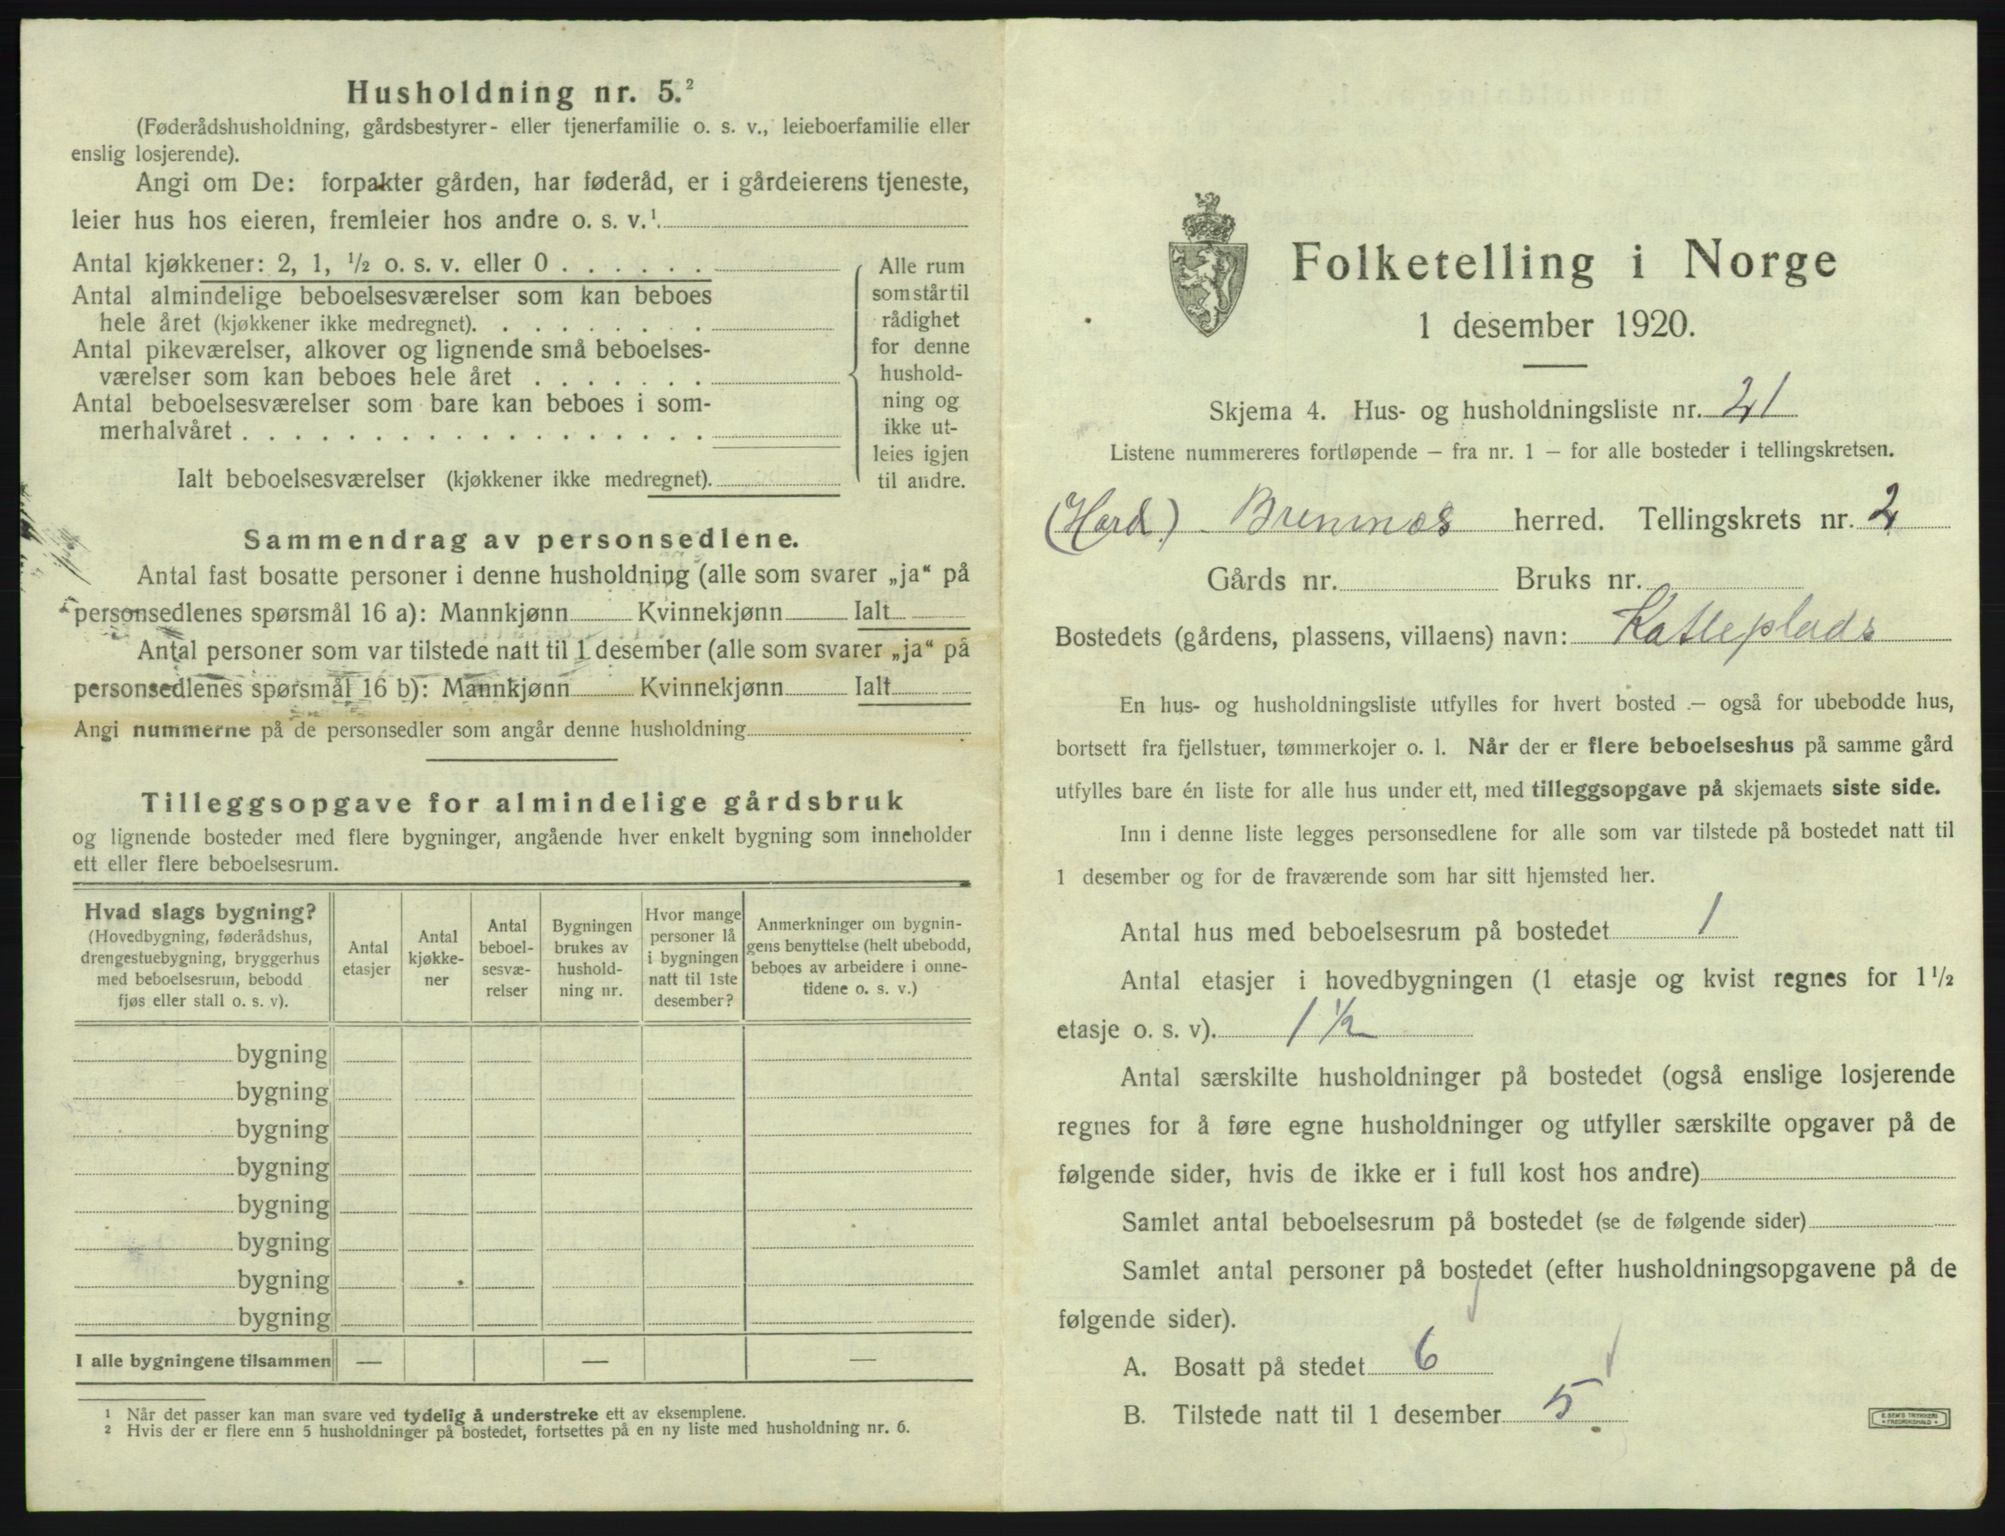 Husholdning nr. 5.²
(Føderådshusholdning, gårdsbestyrer- eller tjenerfamilie o. s. v., leieboerfamilie eller
enslig losjerende).
Angi om De: forpakter gården, har føderåd, er i gårdeierens tjeneste,
leier hus hos eieren, fremleier hos andre o. s. v.¹.
Antal kjøkkener: 2, 1, ½ o. s. v. eller 0 . . . . . .
Antal almindelige beboelsesværelser som kan beboes
hele året (kjøkkener ikke medregnet). . . . . . . . .
Antal pikeværelser, alkover og lignende små beboelses-
værelser som kan beboes hele året . . . . . . .
Antal beboelsesværelser som bare kan beboes i som-
merhalvåret . . . . . . . . . . . . . . . . . .
Ialt beboelsesværelser (kjøkkener ikke medregnet).
Alle rum
som står til
rådighet
for denne
hushold-
ning og
ikke ut-
leies igjen
til andre.
Sammendrag av personsedlene.
Antal fast bosatte personer i denne husholdning (alle som svarer „ja“ på
personsedlenes spørsmål 16 a): Mannkjønn Kvinnekjønn Ialt
Antal personer som var tilstede natt til 1 desember (alle som svarer „ja“ på
personsedlenes spørsmål 16 b): Mannkjønn Kvinnekjønn Ialt
Angi nummerne på de personsedler som angår denne husholdning
Tilleggsopgave for almindelige gårdsbruk
og lignende bosteder med flere bygninger, angående hver enkelt bygning som inneholder
ett eller flere beboelsesrum.
Hvad slags bygning?
(Hovedbygning, føderådshus,
drengestuebygning, bryggerhus
med beboelsesrum, bebodd
fjøs eller stall o. s. v).
Antal
etasjer
Antal
kjøkke-
ner
Antal
beboel-
sesvæ-
relser
Bygningen
brukes av
hushold-
ning nr.
Hvor mange
personer lå
i bygningen
natt til 1ste
desember?
Anmerkninger om bygnin-
gens benyttelse (helt ubebodd,
beboes av arbeidere i onne-
tidene o. s. v.)
bygning
bygning
bygning
bygning
bygning
bygning
bygning
bygning
I alle bygningene tilsammen — — —
¹ Når det passer kan man svare ved tydelig å understreke ett av eksemplene.
² Hvis der er flere enn 5 husholdninger på bostedet, fortsettes på en ny liste med husholdning nr. 6.
Folketelling i Norge
1 desember 1920.
Skjema 4. Hus- og husholdningsliste nr. 21
Listene nummereres fortløpende — fra nr. 1 — for alle bosteder i tellingskretsen.
(Hord.) Bremnes herred. Tellingskrets nr. 2
Gårds nr. Bruks nr.
Bostedets (gårdens, plassens, villaens) navn: Katleplads
En hus- og husholdningsliste utfylles for hvert bosted — også for ubebodde hus,
bortsett fra fjellstuer, tømmerkojer o. l. Når der er flere beboelseshus på samme gård
utfylles bare én liste for alle hus under ett, med tilleggsopgave på skjemaets siste side.
Inn i denne liste legges personsedlene for alle som var tilstede på bostedet natt til
1 desember og for de fraværende som har sitt hjemsted her.
Antal hus med beboelsesrum på bostedet 1
Antal etasjer i hovedbygningen (1 etasje og kvist regnes for 1½
etasje o. s. v). 1 ½
Antal særskilte husholdninger på bostedet (også enslige losjerende
regnes for å føre egne husholdninger og utfyller særskilte opgaver på de
følgende sider, hvis de ikke er i full kost hos andre)
Samlet antal beboelsesrum på bostedet (se de følgende sider)
Samlet antal personer på bostedet (efter husholdningsopgavene på de
følgende sider).
A. Bosatt på stedet 6
B. Tilstede natt til 1 desember 5
E. SEM'S TRYKKERI
FREDRIKSHALD